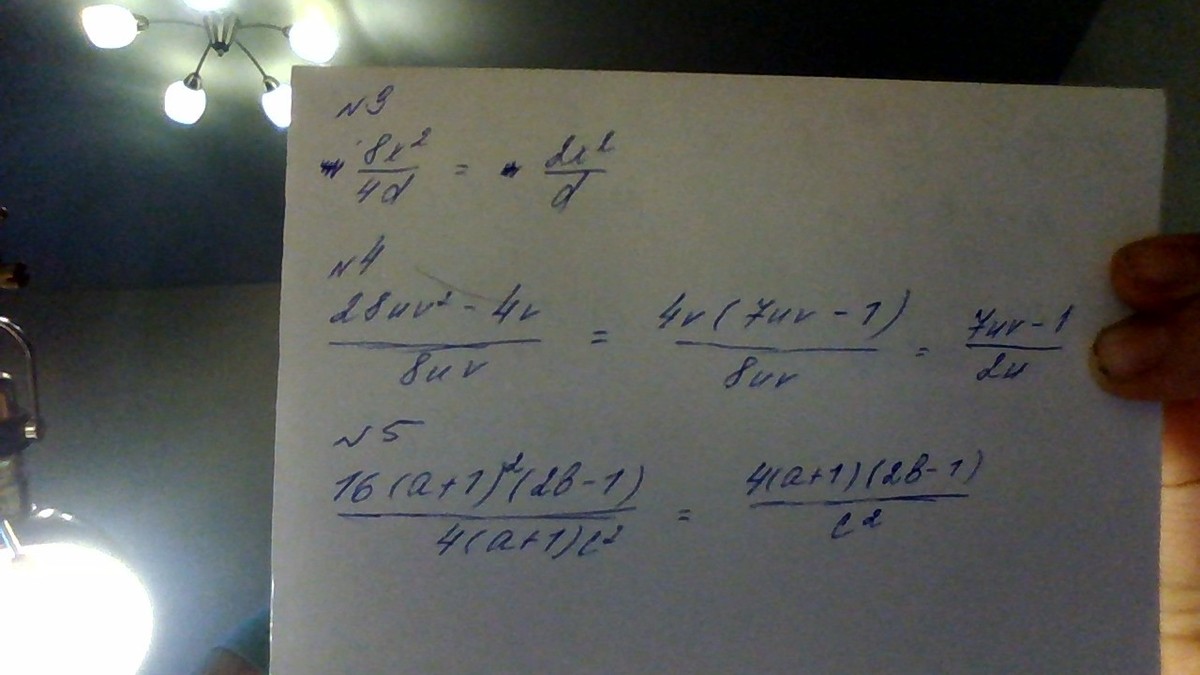 N3
8x²/4d = 2x²/d
N4
(28uv² - 4v)/8uv = 4v(7uv - 1)/8uv = (7uv - 1)/2u
N5
16(a+1)²(2b-1)/4(a+1)c² = 4(a+1)(2b-1)/c²